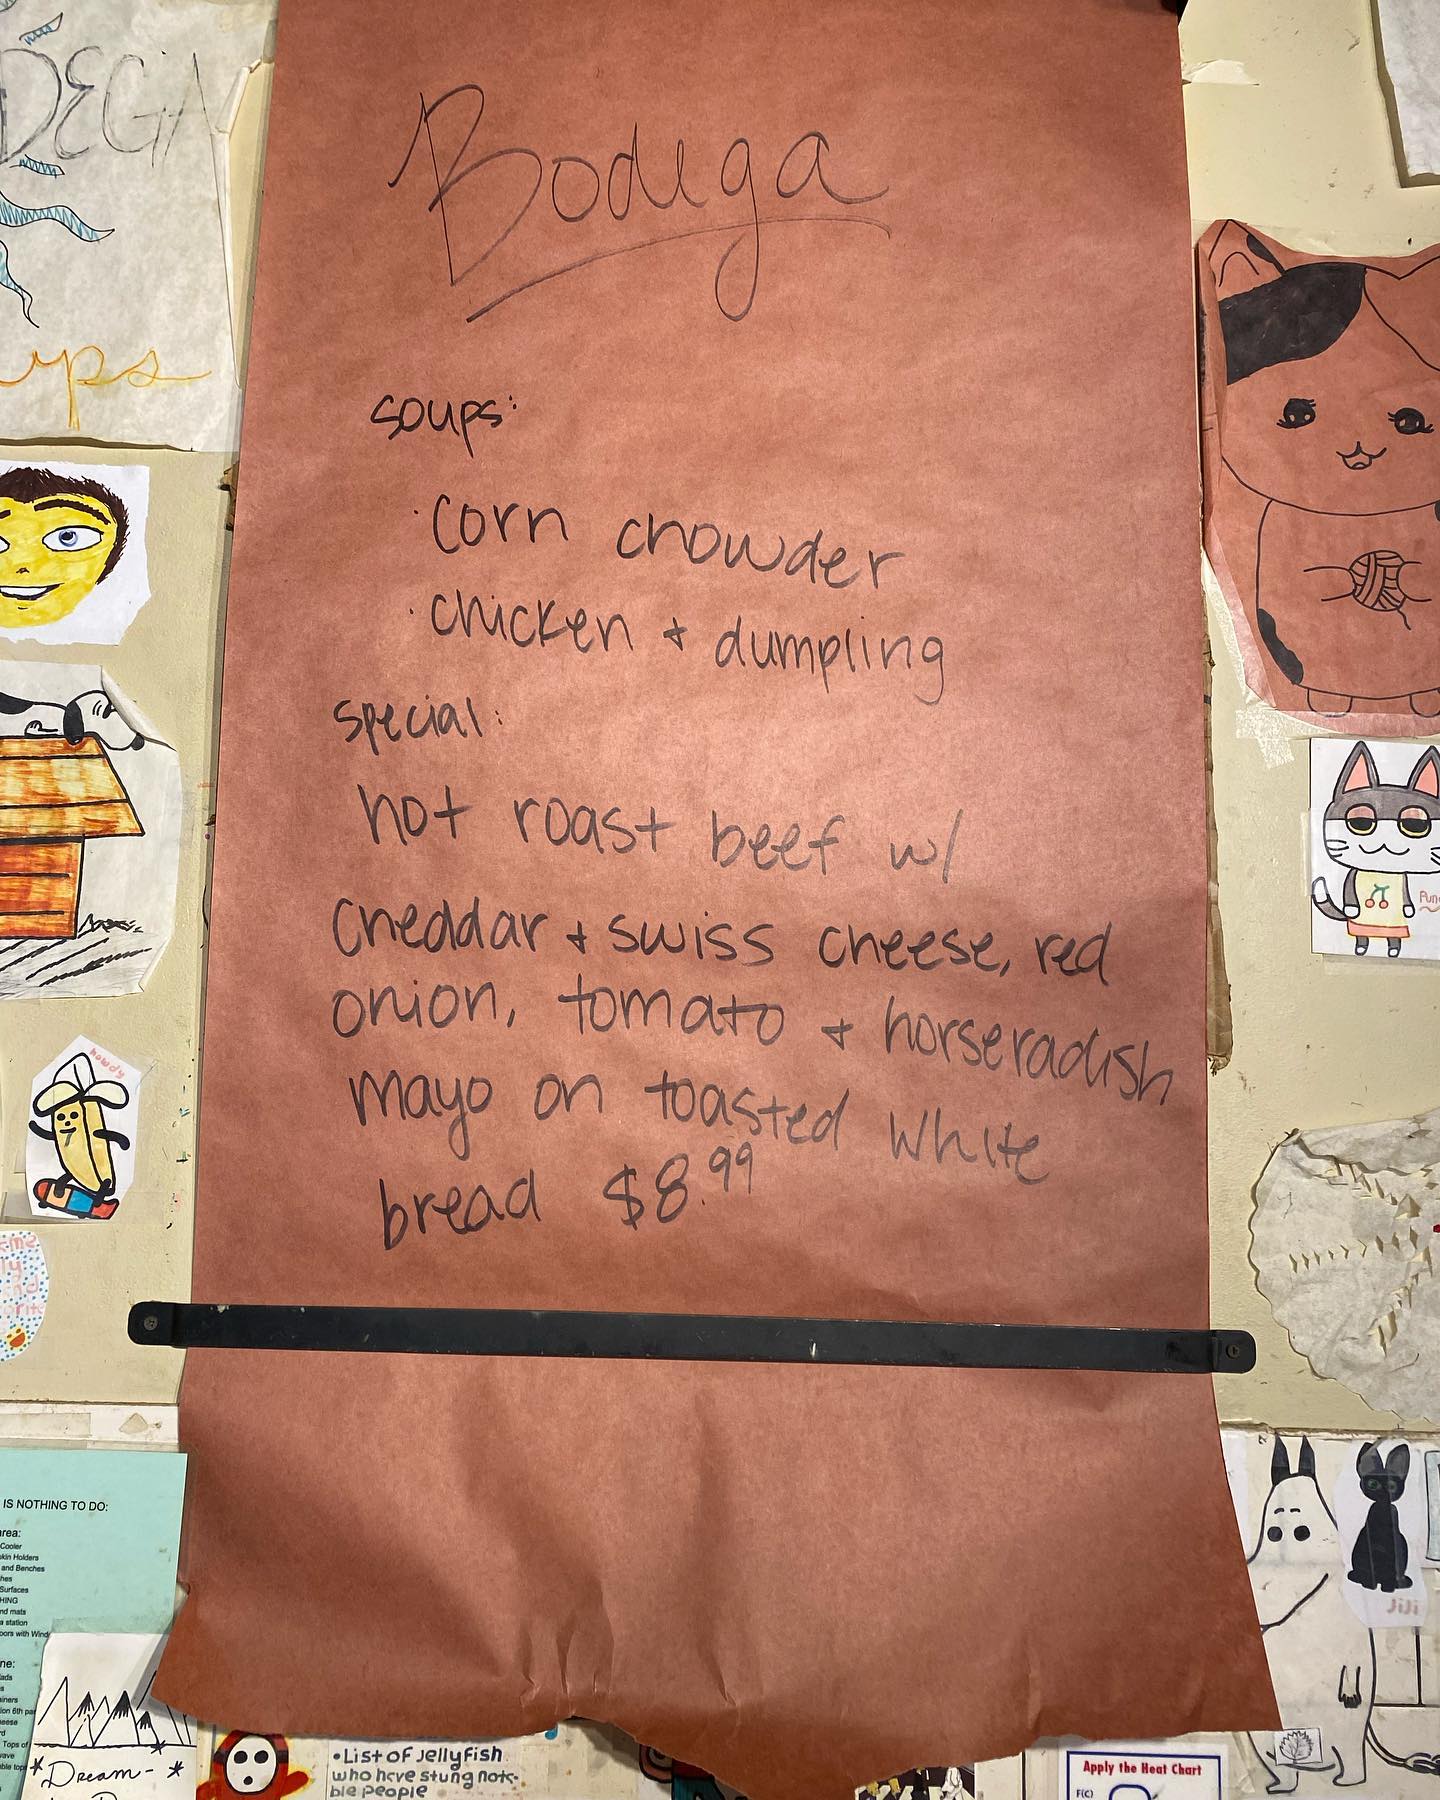 DEGA
ups
Bodega
soups:
· corn chowder
· chicken + dumpling
special:
hot roast beef w/
cheddar + swiss cheese, red
onion, tomato + horseradish
mayo on toasted white
bread $8.99
howdy
IS NOTHING TO DO:
Cooler
Holders
and Benches
Surfaces
nd mats
station
with
* Dream- *
• List of jellyfish
who have stung nota-
ble people
Jiji
Apply the Heat Chart
F(C)